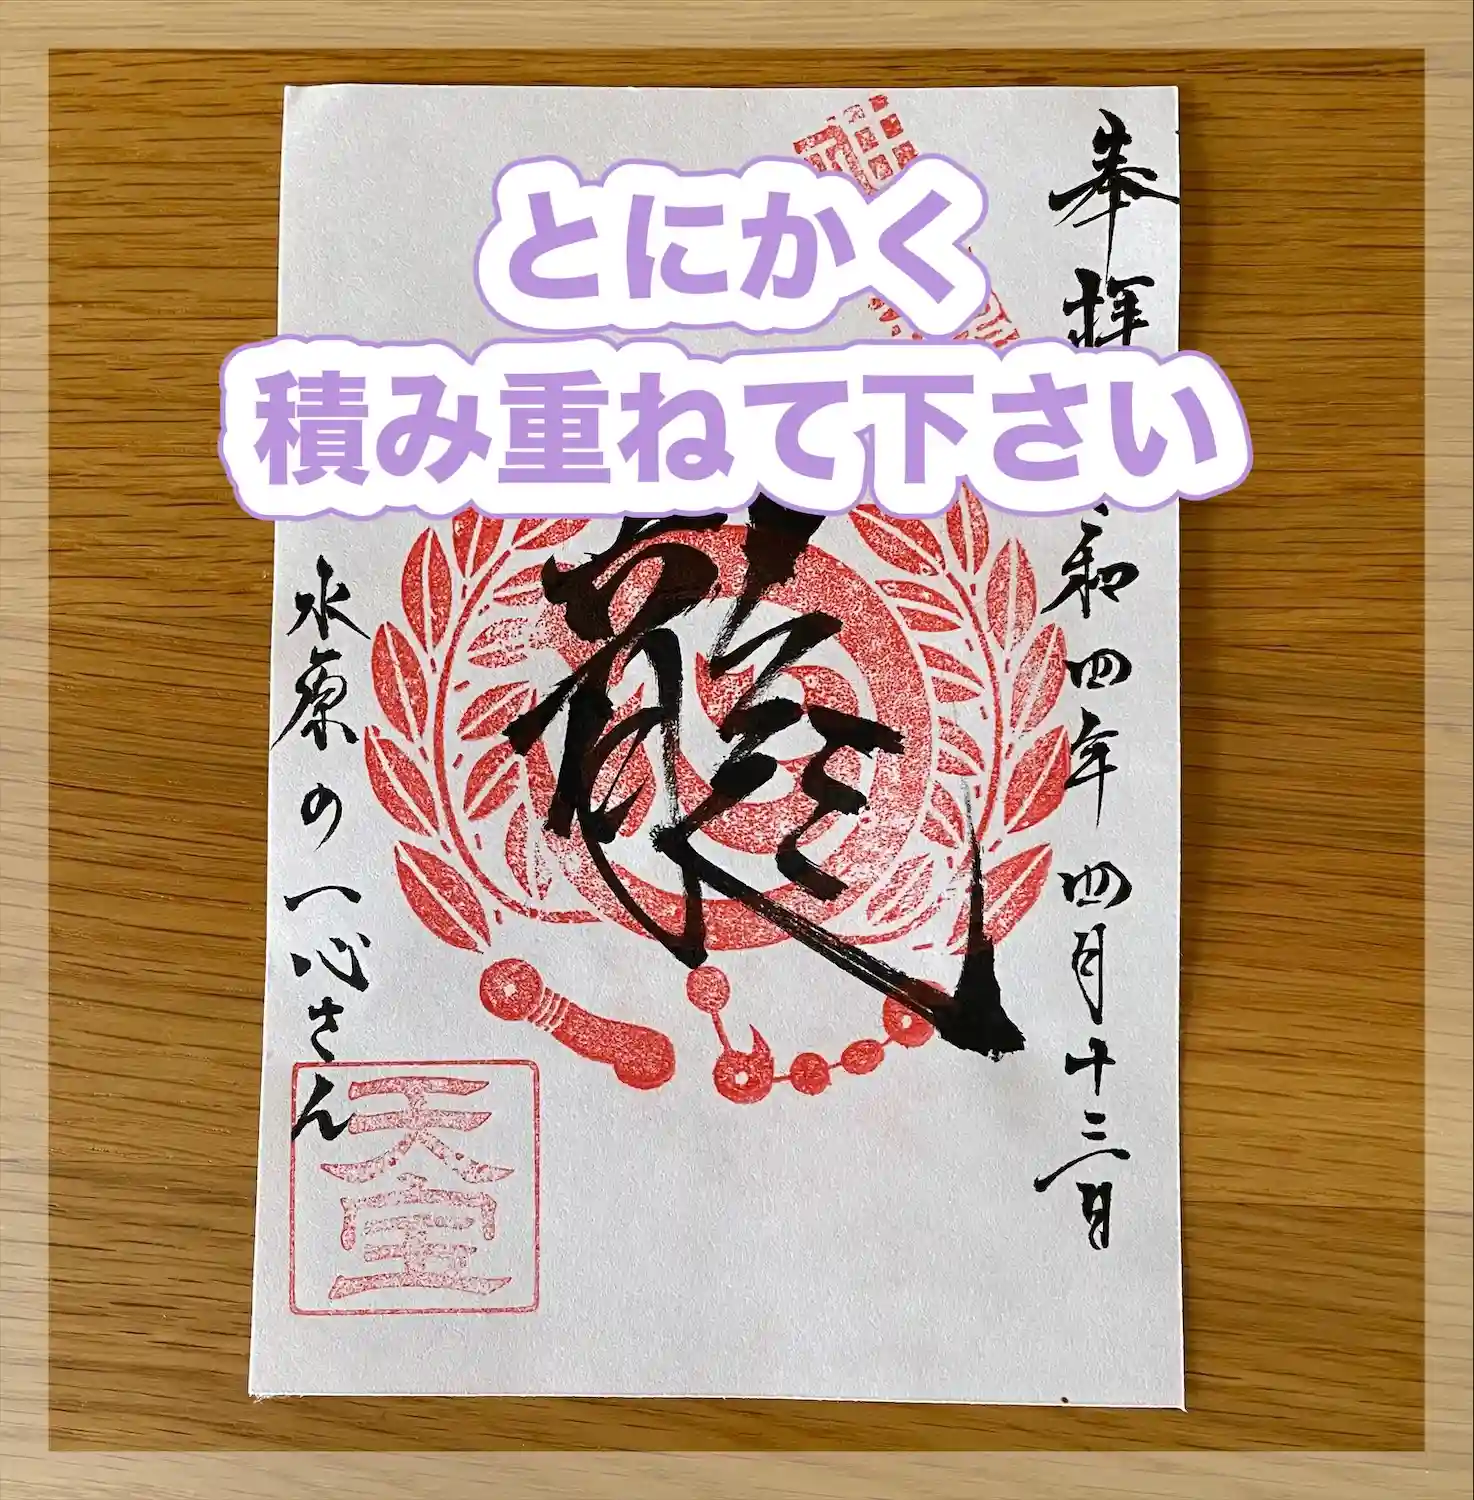 とにかく
積み重ねて下さい
奉拝
和四年四月十三日
龍
水原の一心さん
天室